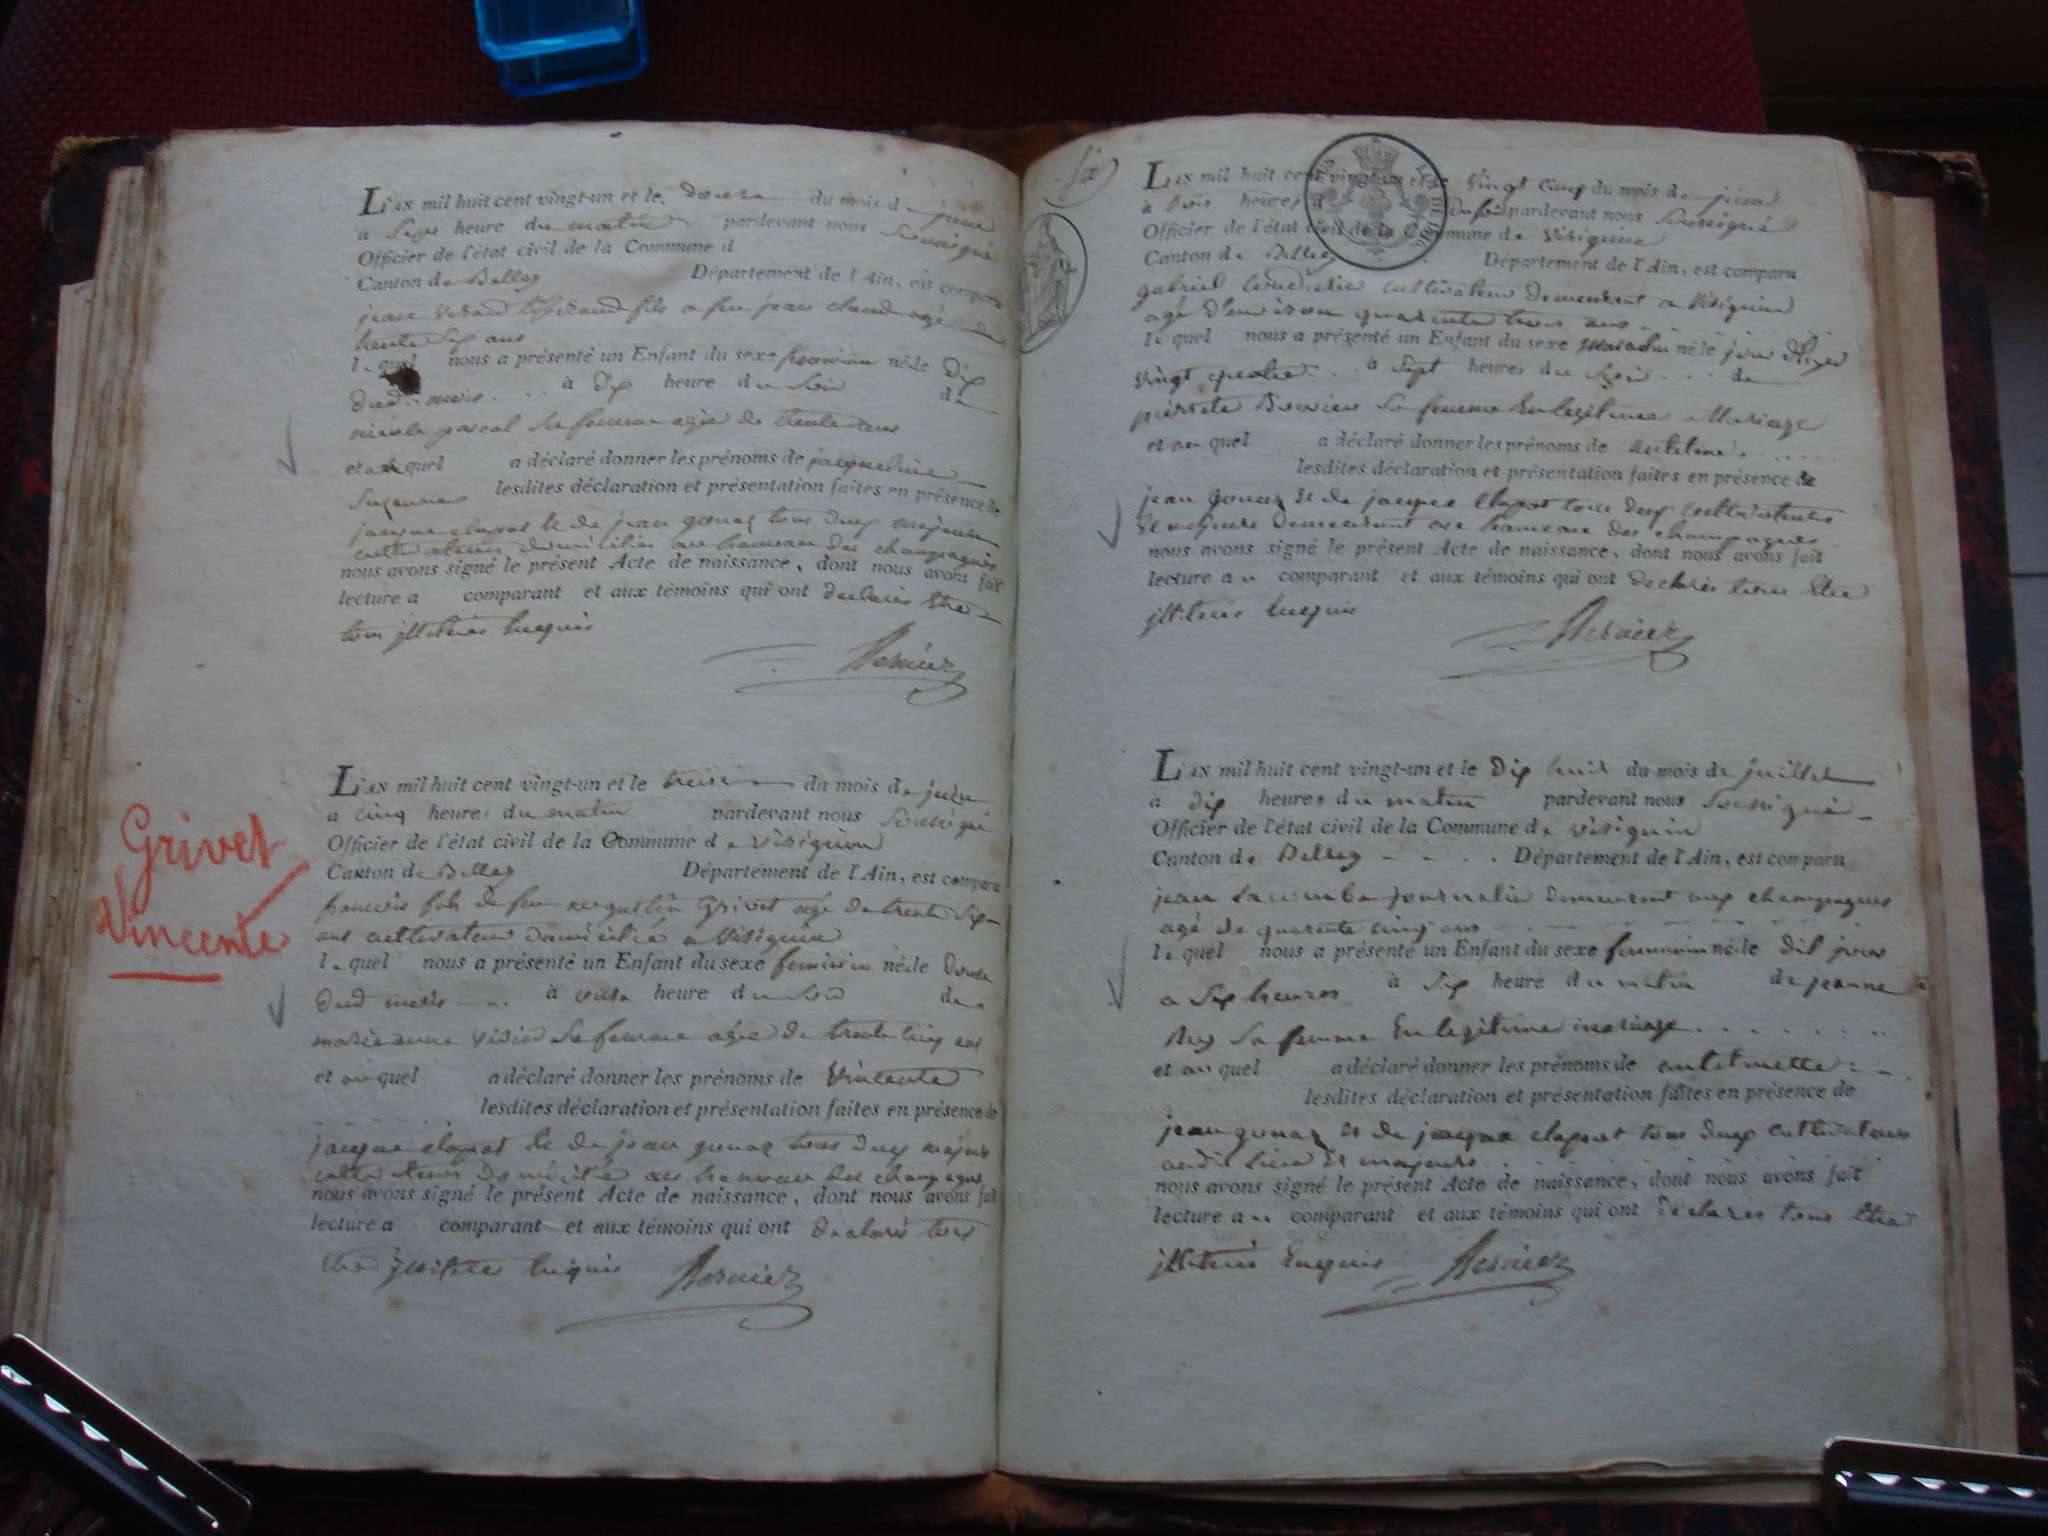 L'an mil huit cent vingt-un et le douze du mois de juin
a sept heure du matin pardevant nous soussigné
Officier de l'état civil de la Commune d
Canton de Belley Département de l'Ain, est comparu
jean fils a feu jean claude agé de
trente six ans
le quel nous a présenté un Enfant du sexe feminin né le dix
dud. mois à dix heure du soir de
nicole pascal sa femme agée de trente ans
et auquel a déclaré donner les prénoms de jacqueline
suzanne lesdites déclaration et présentation faites en présence de
jacque clapot et de jean gonaz tous deux majeurs
cultivateurs domiciliés au hameau des champagnes
nous avons signé le présent Acte de naissance, dont nous avons fait
lecture a comparant et aux témoins qui ont declarés etre
tous jlliteres Enquis
L'an mil huit cent vingt-un et le treize du mois de juin
a cinq heures du matin pardevant nous soussigné
Officier de l'état civil de la Commune de virignin
Canton de Belley Département de l'Ain, est comparu
Grivet
Vincente
francois fils de feu augustin Grivet agé de trente six
ans cultivateur domicilié a virignin
le quel nous a présenté un Enfant du sexe feminin né le douze
dud mois à onze heure du soir de
marieanne sa femme agée de trente cinq ans
et au quel a déclaré donner les prénoms de Vincente
lesdites déclaration et présentation faites en présence de
jacque clapot et de jean gonaz tous deux majeurs
cultivateurs domicilié au hameau des champagnes
nous avons signé le présent Acte de naissance, dont nous avons fait
lecture a comparant et aux témoins qui ont declarés tous
etre jlliteres Enquis
six
L'an mil huit cent vingt-un et le vingt cinq du mois de juin
à trois heures du soir pardevant nous soussigné
Officier de l'état civil de la Commune de virignin
Canton de Belley Département de l'Ain, est comparu
gabriel cultivateur demeurant a virignin
agé d'environ quarente trois ans
le quel nous a présenté un Enfant du sexe masculin né le jour d'hyer
vingt quatre à sept heures du soir de
pierrete sa femme En legitime Mariage
et au quel a déclaré donner les prénoms de antelme
lesdites déclaration et présentation faites en présence de
jean gonaz et de jacques clapot tous deux cultivateurs
et majeurs demeurant au hameau des champagnes
nous avons signé le présent Acte de naissance, dont nous avons fait
lecture au comparant et aux témoins qui ont declarés tous Etre
jllitères Enquis
L'an mil huit cent vingt-un et le dix huit du mois de juillet
à dix heures du matin pardevant nous soussigné
Officier de l'état civil de la Commune de virignin
Canton de Belley Département de l'Ain, est comparu
jean journalier demeurant aux champagnes
agé de quarente cinq ans
le quel nous a présenté un Enfant du sexe feminin né le dit jour
a six heures à six heure du matin de jeanne
sa femme En legitime mariage
et au quel a déclaré donner les prénoms de antelmette
lesdites déclaration et présentation faites en présence de
jean gonaz et de jacque clapot tous deux cultivateurs
audit lieu et majeurs
nous avons signé le présent Acte de naissance, dont nous avons fait
lecture au comparant et aux témoins qui ont déclarés tous etre
jllitères Enquis